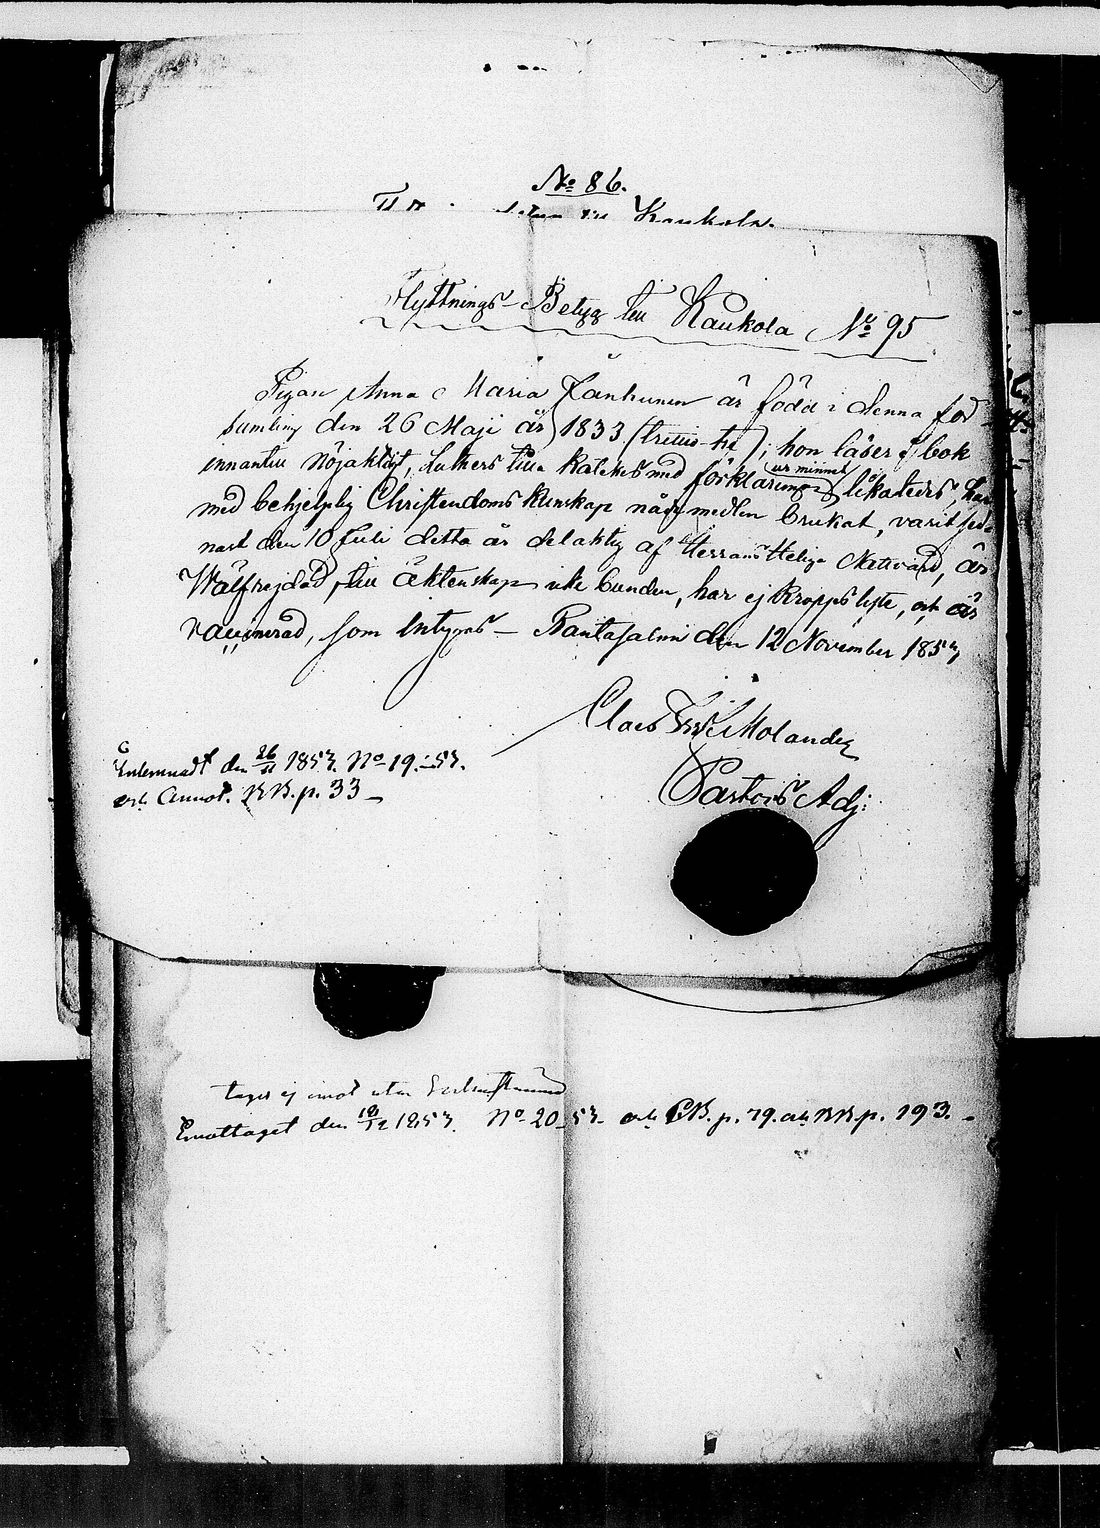 No 86.
Kaukola.
Flyttnings-Betyg till Kaukola No 95
Pigan Anna Maria Janhunen är född i denna för
samling den 26 Maji år 1833 (trettio-tre); hon läser i bok
innantill nöjaktigt, Luthers lilla Katekes med förklaringen ur minnet likaledes, har
med behjelplig Christendoms kunskap nådemedlen brukat, varit sed-
nast den 10 Juli detta år delaktig af Herrans Heliga Nattvard, är
Wälfrejdad, till äktenskap icke bunden, har ej kroppslyte, och är
vaccinerad, som intygas — Rantasalmi den 12 November 1857,
Claes Fredr Molander
Pastors Adj:
Inlemnadt den 26/11 1857. No 19.-57.
och Annot. p. 33 —
tages ej emot utan
Emottaget den 18/12 1857. No 20-57. och CB. p. 79. och p. 193. -